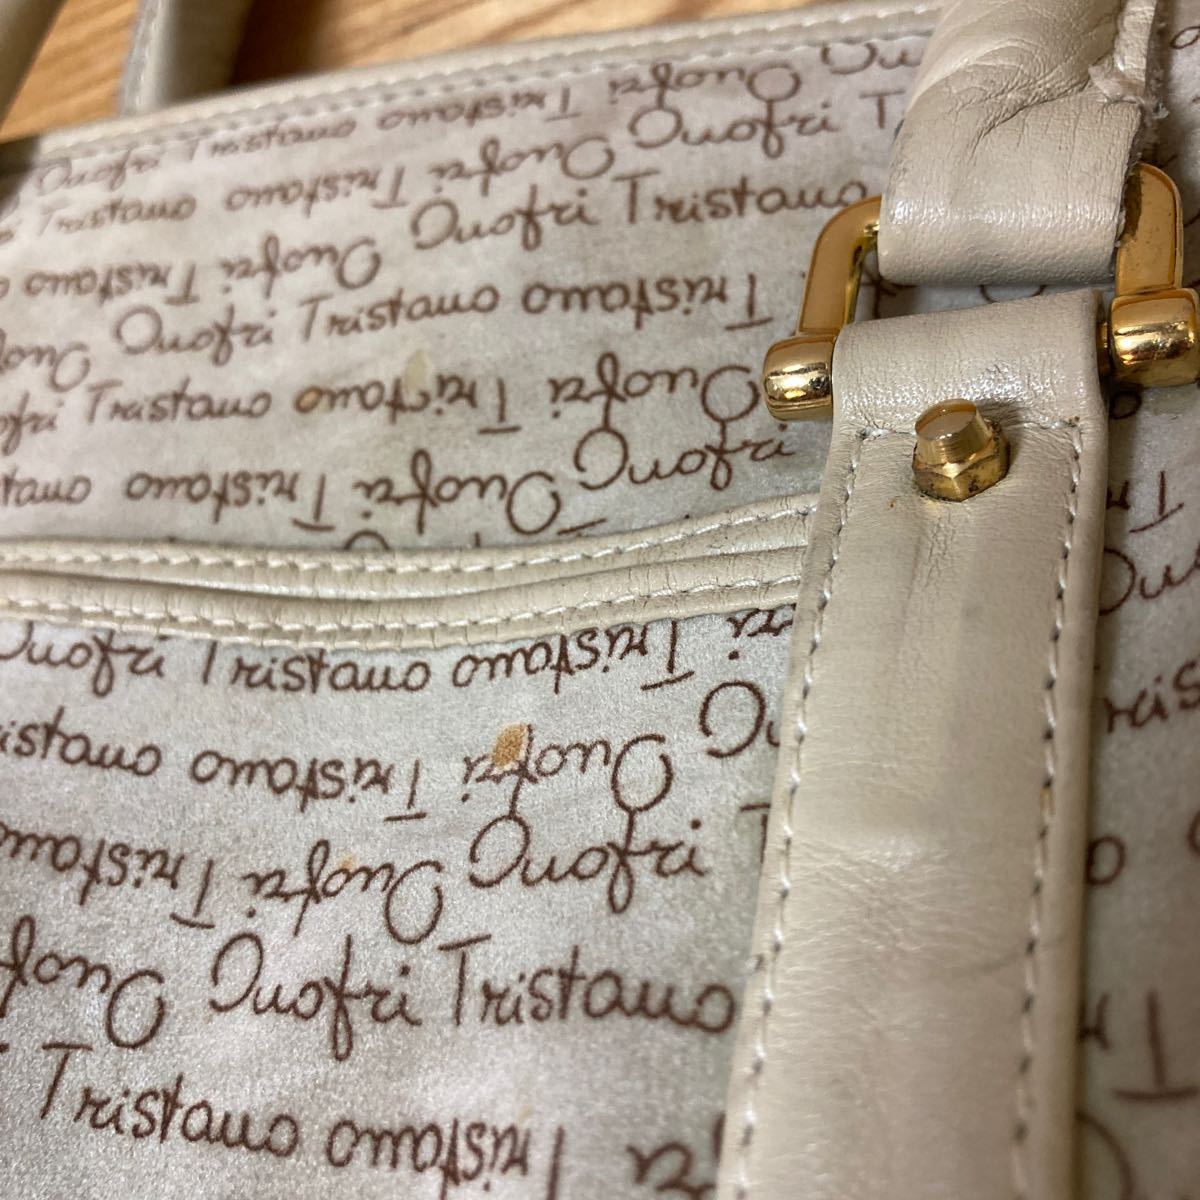 Onofri Tristano Tristano Onofri
Tristano Tristano Onofri Onofri
Tristano Onofri Onofri Tristano
Onofri Tristano Tristano
Tristano Tristano Onofri
Tristano Onofri Onofri
Onofri Tristano Tristano
Tristano Onofri
Tristano Onofri Onofri
Onofri Tristano
Tristano Tristano